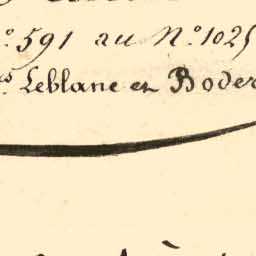 º 591 au Nº 1025
Leblanc et Boder